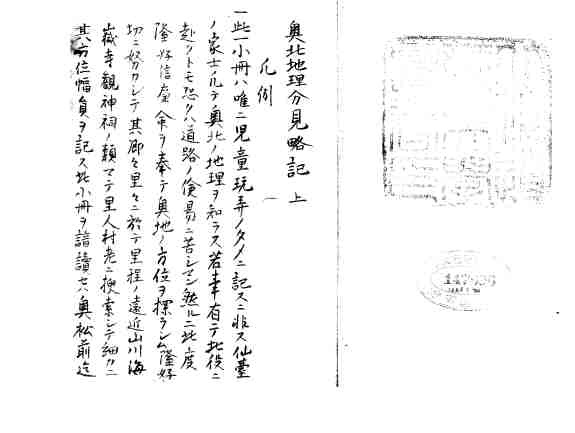 奥北地理分見略記 上
凡例 一
一此一小冊ハ唯ニ児童玩弄ノタメニ記スニ非ス仙臺
ノ家士凡テ奥北ノ地理ヲ知ラス若事有テ此役ニ
赴クトモ恐クハ道路ノ倹易ニ苦シマン然ルニ此度
隆好信屋命ヲ奉テ奥地ノ方位ヲ探ラシム隆好
切ニ努カシテ其郷々里々ニ於テ里程ノ遠近山川海
嶽寺観神祠ノ類マテ里人村老ニ捜索シテ細カニ
其方位幅員ヲ記ス此小冊ヲ諳讀セハ奥松前迄